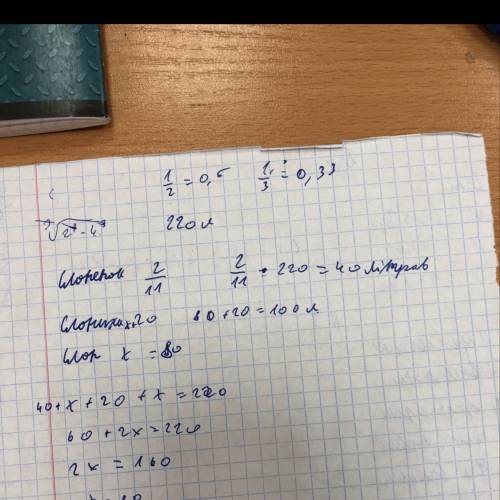 1/2 = 0,5 1/3 = 0,33
220 л
Слоненя 2/11 2/11 · 220 = 40 літрав
x+20 80+20=100 л
Слон x = 80
40+x+20+x=220
60+2x=220
2x=160